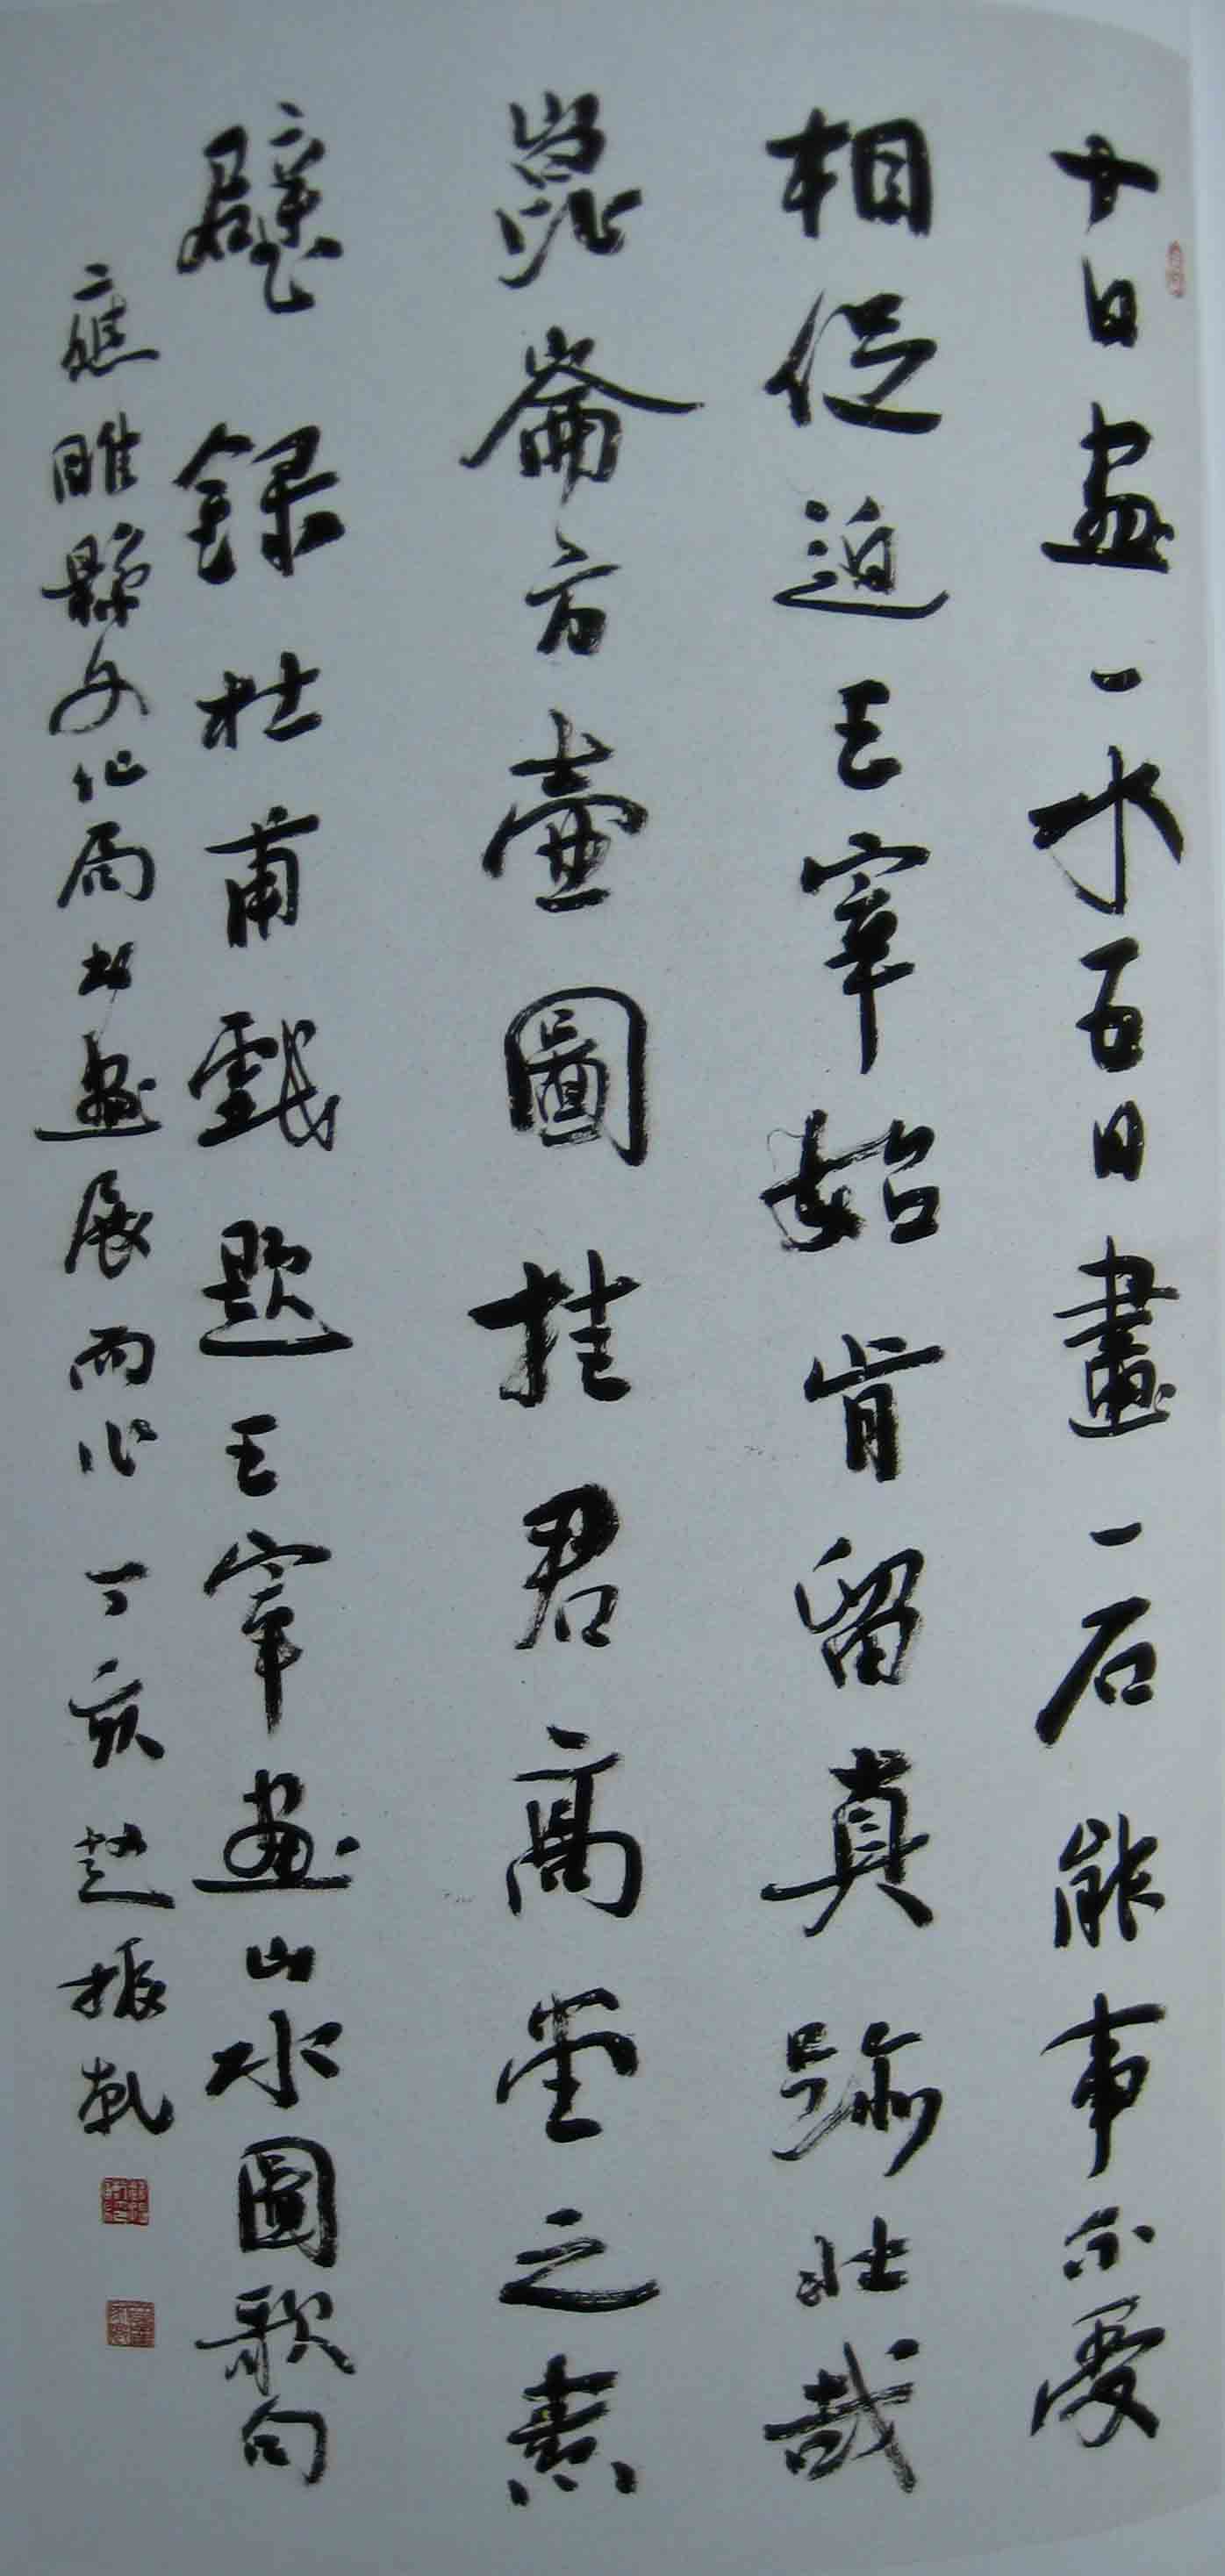 十日畫一水百日畫一石能事不受
相促迫王宰始肯留真跡壯哉
崑崙方壺圖挂君高堂之素
壁錄杜甫戲題王宰畫山水圖歌句
應睢縣文化局書畫展而作丁亥趙振乾